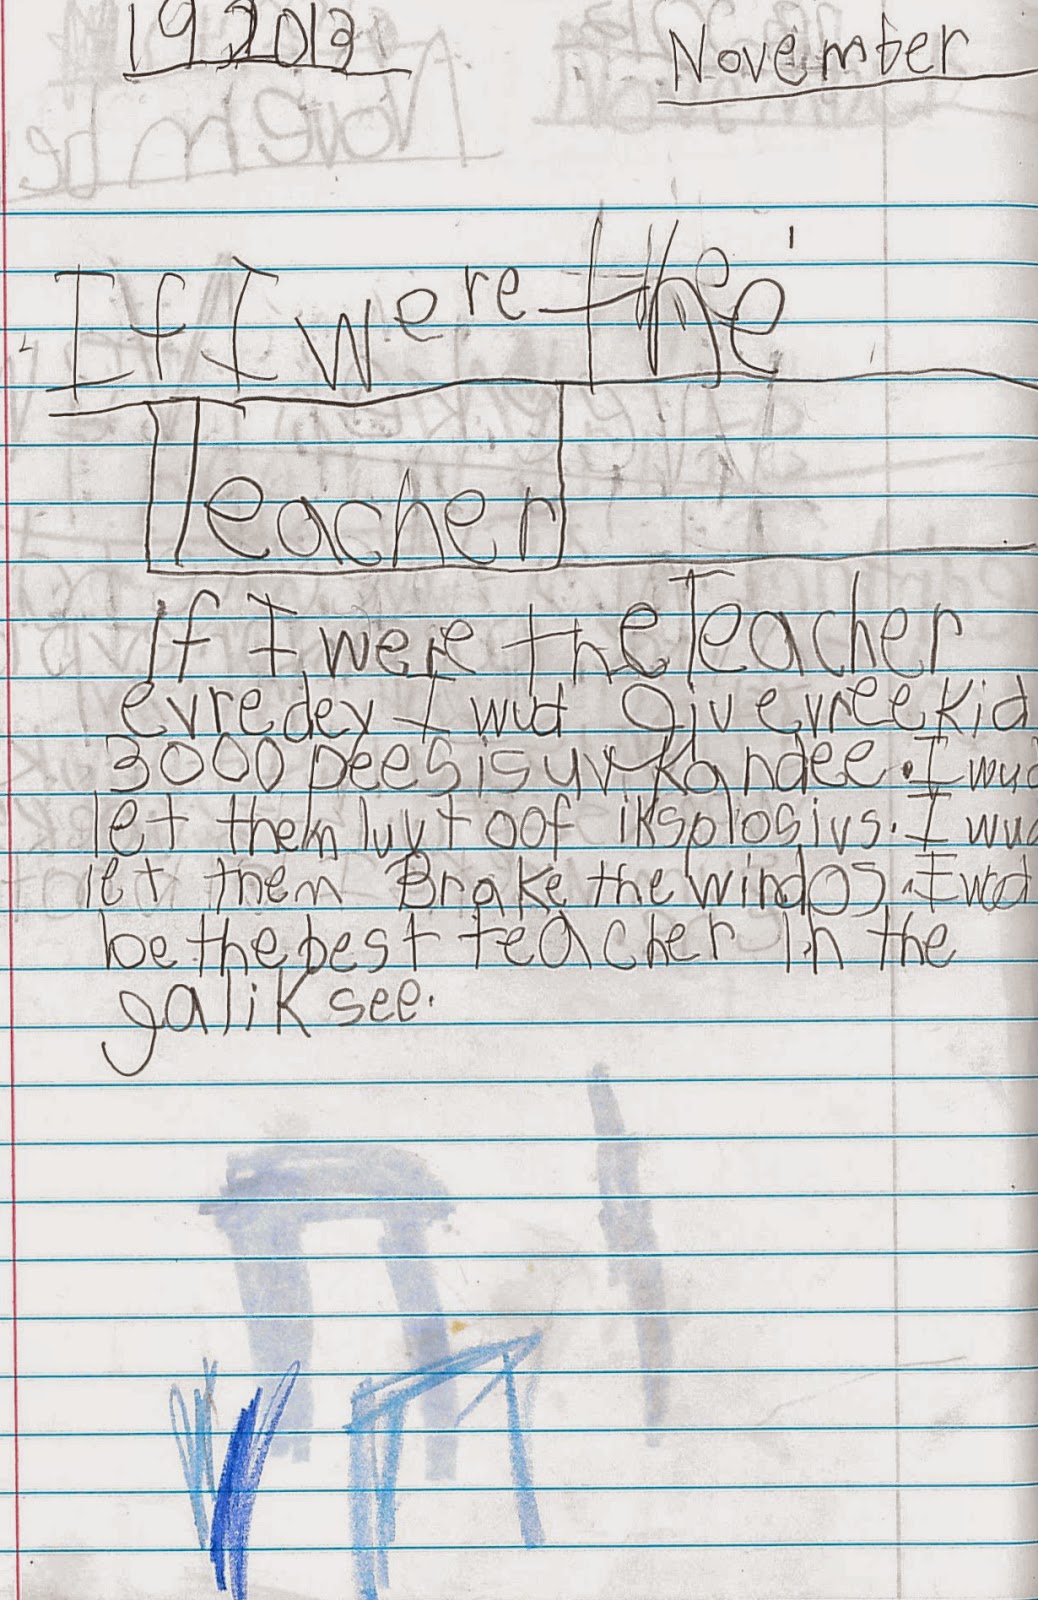 19 2013 November
If I were the
Teacher
If I were the Teacher
evredey I wud giv evree kid
3000 peesis uv kandee. I wud
let them luyt oof iksplosivs. I wud
let them Brake the windos. I wud
be the best teacher in the
galiksee.